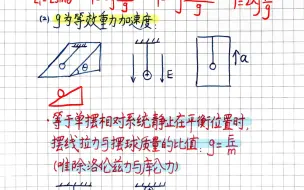 (2) g为等效重力加速度:
θ
E
a
·等于单摆相对系统静止在平衡位置时,
摆线拉力与摆球质量的比值: g=F/m
(唯除洛伦兹力与库仑力)